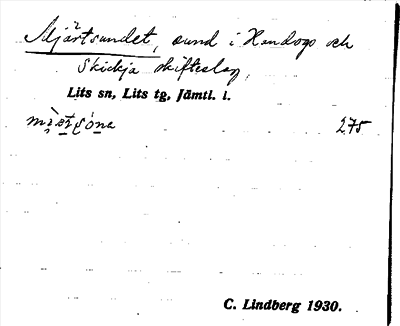 Mjärtsundet, sund i Handogs och
Skickja skifteslag,
Lits sn, Lits tg, Jämtl. l.
275
C. Lindberg 1930.